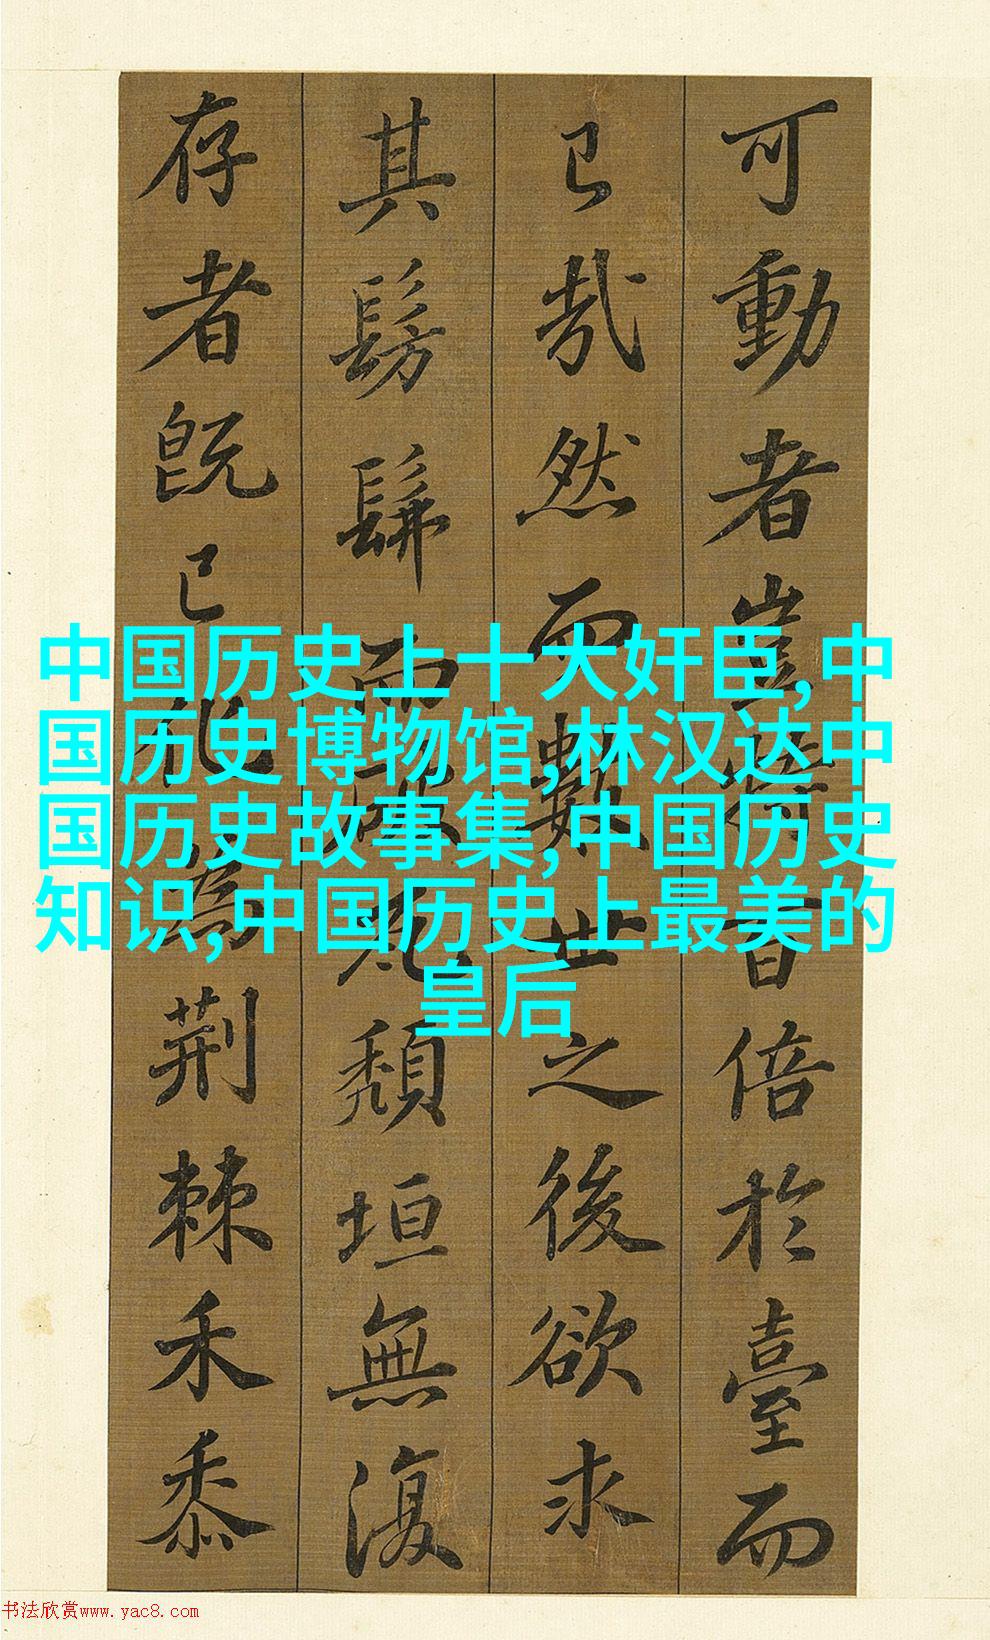 可動者豈特百倍於臺而
已哉然而數世之後欲求
其髣髴而破瓦頹垣無復
存者既已化為荊棘禾黍
中国历史上十大奸臣,中
国历史博物馆,林汉达中
国历史故事集,中国历史
知识,中国历史上最美的
皇后
书法欣赏www.yac8.com